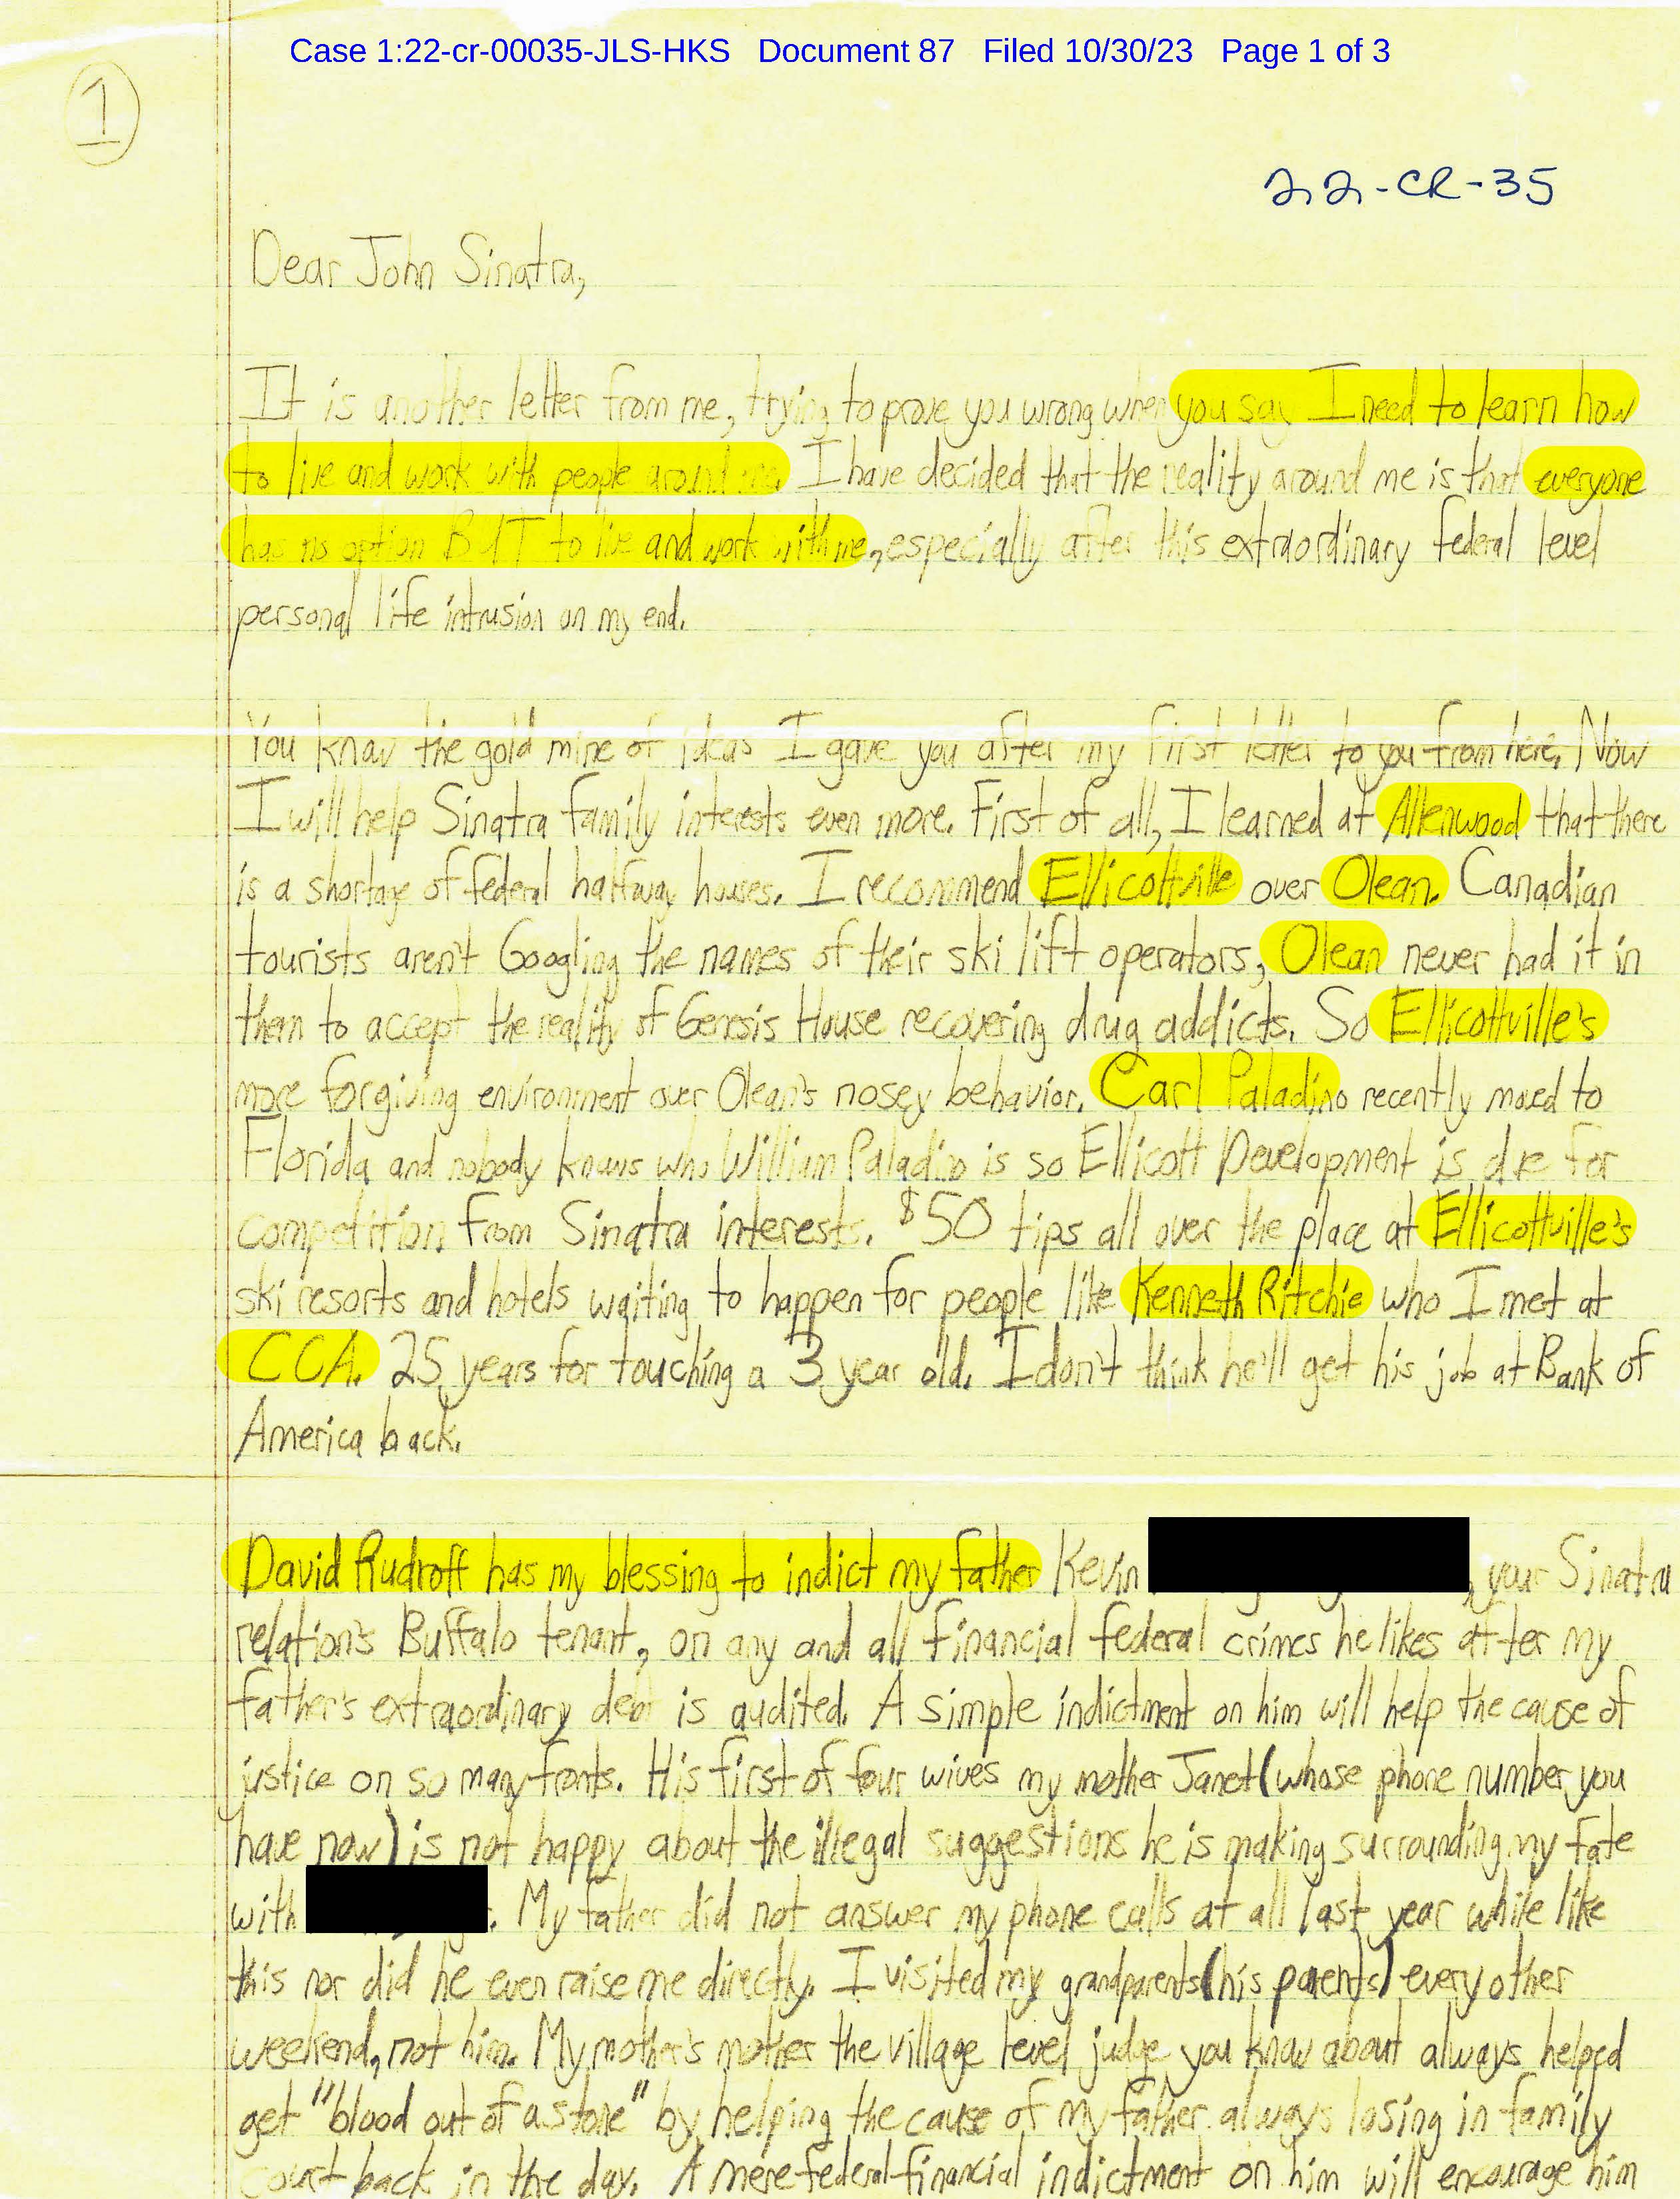 Case 1:22-cr-00035-JLS-HKS Document 87 Filed 10/30/23 Page 1 of 3
1
22-CR-35
Dear John Sinatra,
It is another letter from me, trying to prove you wrong when you say I need to learn how
to live and work with people around me. I have decided that the reality around me is that everyone
has no option BUT to live and work with me, especially after this extraordinary federal level
personal life intrusion on my end.
You know the gold mine of ideas I gave you after my first letter to you from here. Now
I will help Sinatra family interests even more. First of all, I learned at Allenwood that there
is a shortage of federal halfway houses. I recommend Ellicottville over Olean. Canadian
tourists aren't Googling the names of their ski lift operators, Olean never had it in
them to accept the reality of Genesis House recovering drug addicts. So Ellicottville's
more forgiving environment over Olean's nosey behavior. Carl Paladino recently moved to
Florida and nobody knows who William Paladino is so Ellicott Development is due for
competition from Sinatra interests. $50 tips all over the place at Ellicottville's
ski resorts and hotels waiting to happen for people like Kenneth Ritchie who I met at
CCA. 25 years for touching a 3 year old. I don't think he'll get his job at Bank of
America back.
David Rudroff has my blessing to indict my father Kevin , your Sinatra
relation's Buffalo tenant, on any and all financial federal crimes he likes after my
father's extraordinary debt is audited. A simple indictment on him will help the cause of
justice on so many fronts. His first of four wives my mother Janet (whose phone number you
have now) is not happy about the illegal suggestions he is making surrounding my fate
with . My father did not answer my phone calls at all last year while like
this nor did he even raise me directly. I visited my grandparents (his parents) every other
weekend, not him. My mother's mother the village level judge you know about always helped
get "blood out of a stone" by helping the cause of my father always losing in family
court back in the day. A mere federal financial indictment on him will encourage him